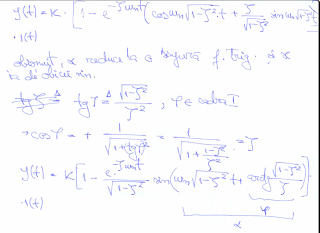 y(t) = K · [1 - e^{-ζωnt} (cos ωn√(1-ζ²) t + ζ/√(1-ζ²) sin ωn√(1-ζ²) t
· 1(t)
reduce la o singură f. trig. și
de sin.
tg φ ≜ √(1-ζ²)/ζ² , φ ∈ cadra I
→ cos φ = + 1/√(1+tg²φ) = 1/√(1+(1-ζ²)/ζ²) = ζ
y(t) = K [1 - e^{-ζωnt}/√(1-ζ²) sin(ωn√(1-ζ²) t + arctg √(1-ζ²)/ζ)]
· 1(t)
φ
α